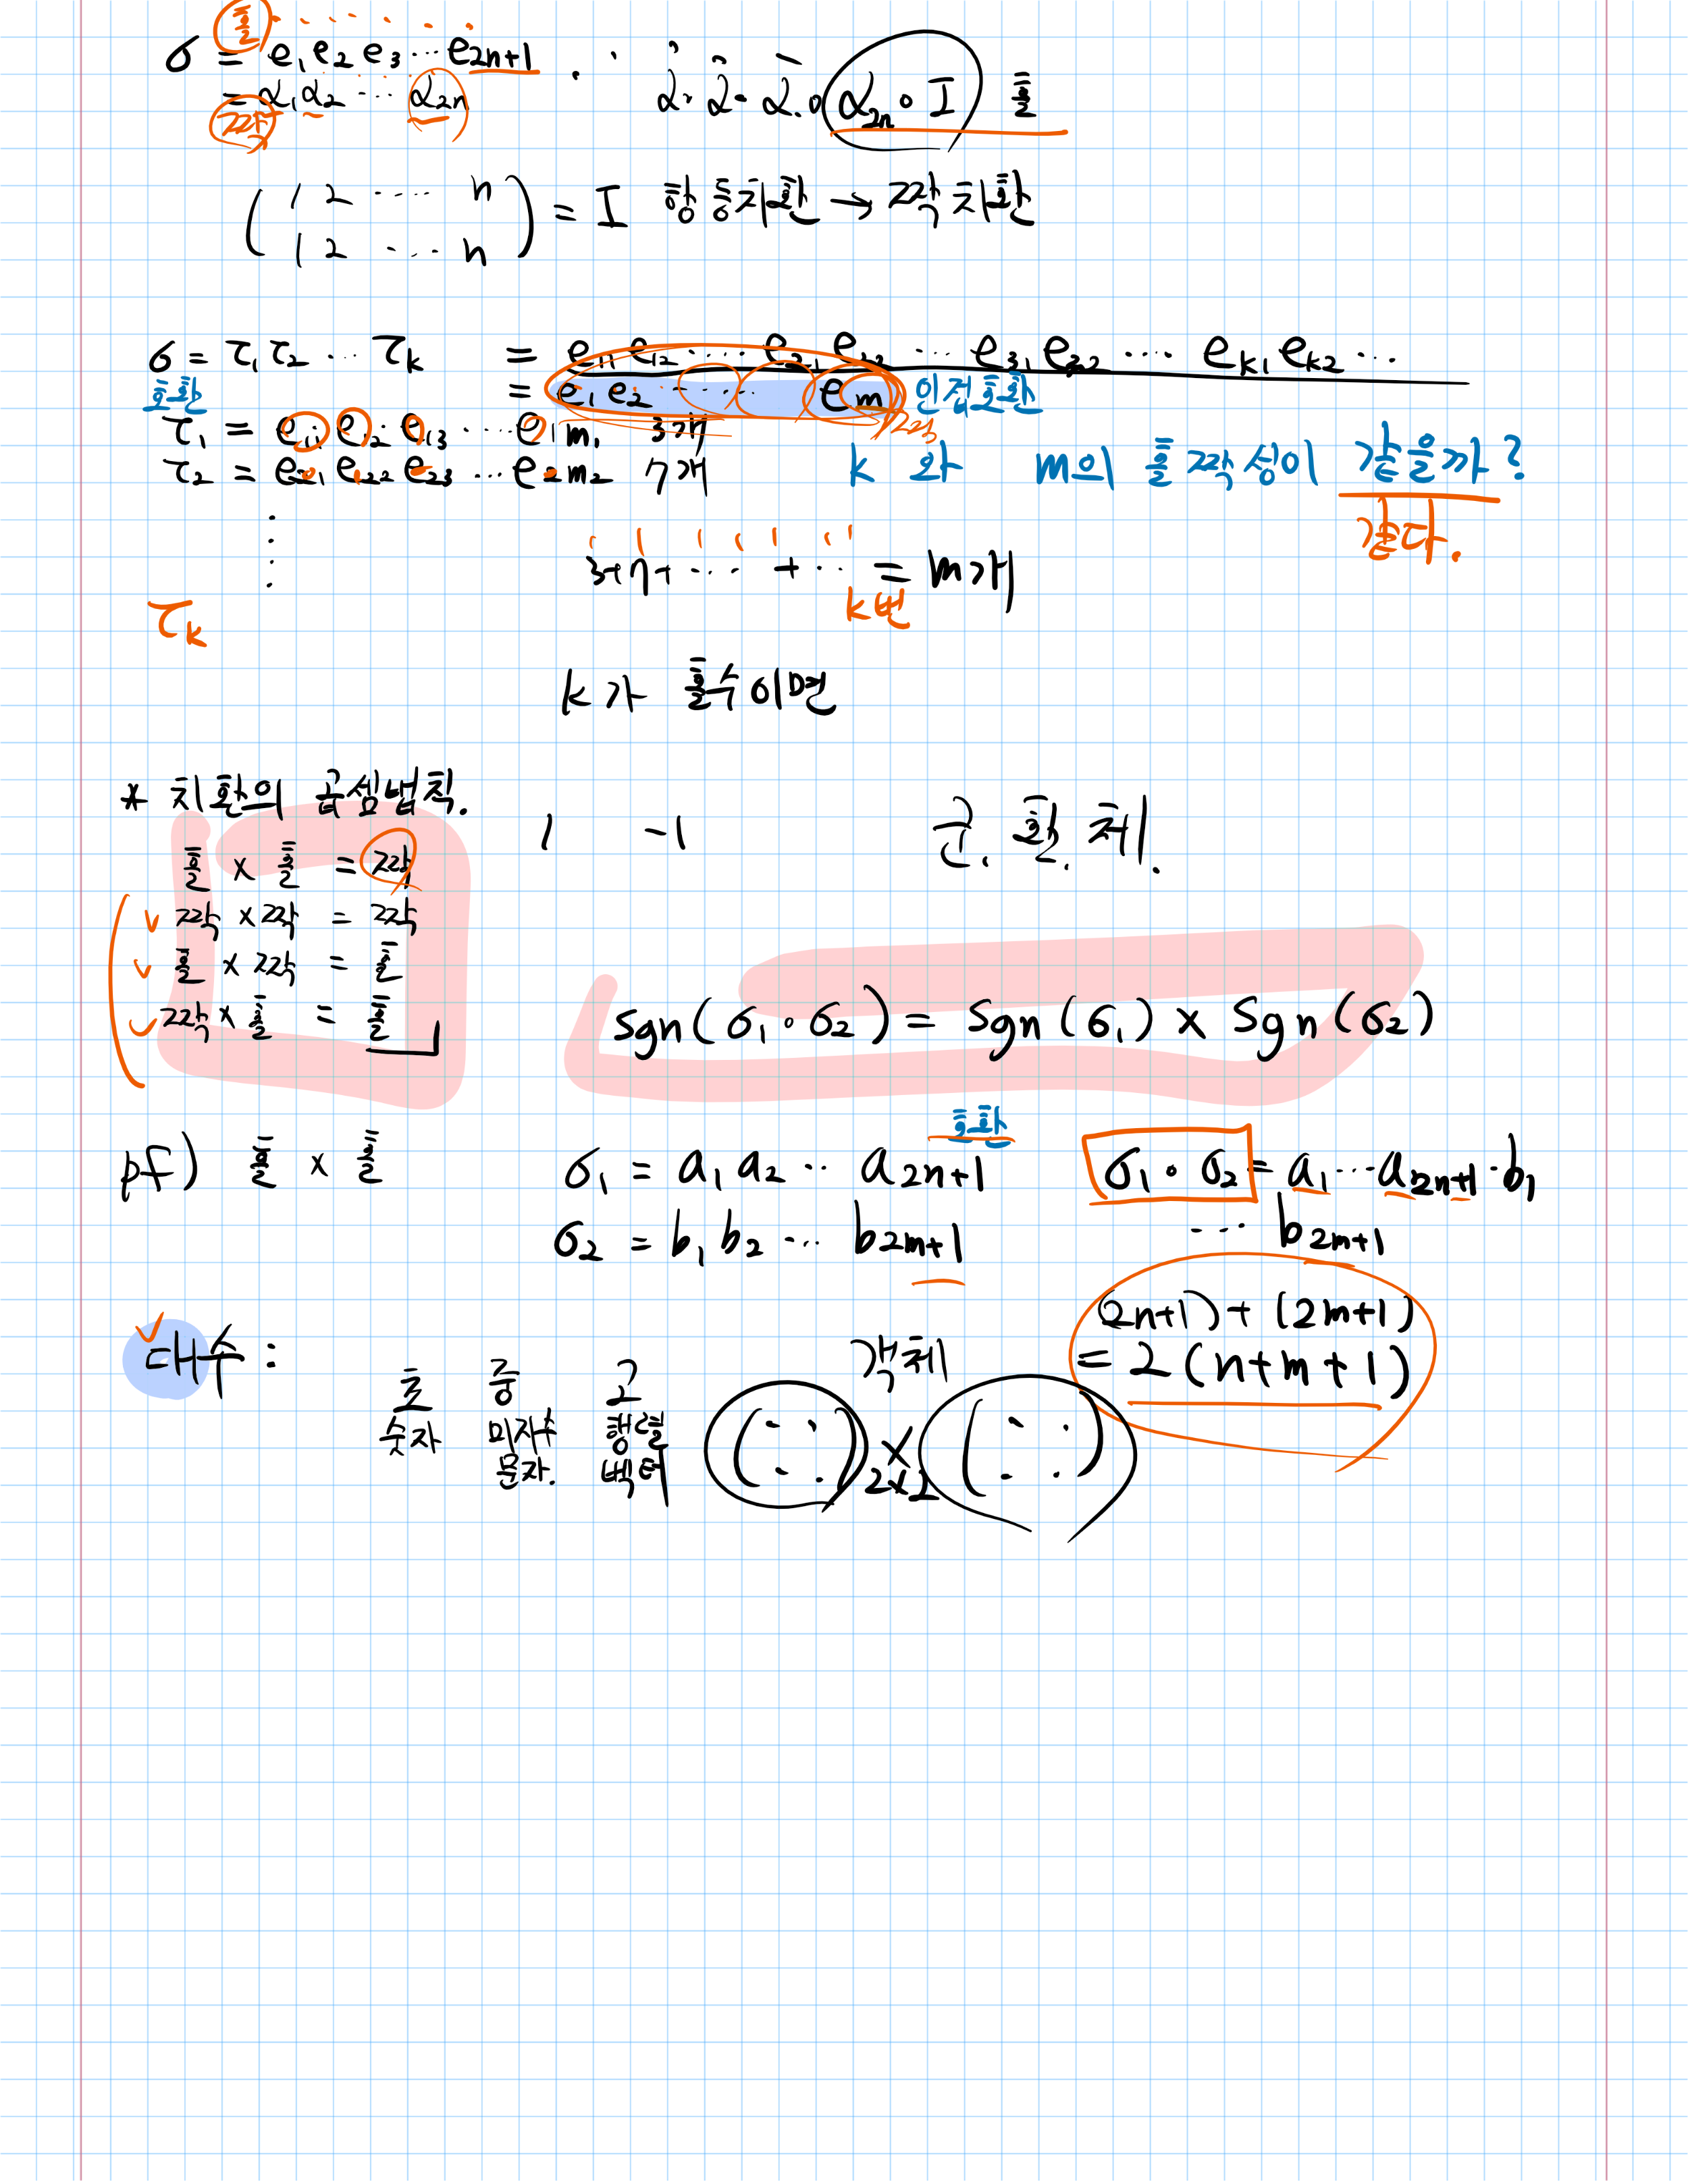 홀
σ = e₁ e₂ e₃ ⋯ e₂ₙ₊₁
= α₁ α₂ ⋯ α₂ₙ
짝
α∘α∘α∘α₂ₙ∘I 홀
(1 2 ⋯ n
1 2 ⋯ n) = I 항등치환 → 짝치환
σ = τ₁ τ₂ ⋯ τₖ = e₁₁ e₁₂ ⋯ e₂₁ e₂₂ ⋯ e₃₁ e₃₂ ⋯ eₖ₁ eₖ₂ ⋯
호환 = e₁ e₂ ⋯ eₘ 인접호환
τ₁ = e₁₁ e₁₂ e₁₃ ⋯ e₁m₁ 3개
τ₂ = e₂₁ e₂₂ e₂₃ ⋯ e₂m₂ 7개
k 와 m의 홀짝성이 같을까?
같다.
⋮
3+7+⋯+⋯ = m개
k번
τₖ
k가 홀수이면
* 치환의 곱셈법칙.
1 -1
군. 환. 체.
홀 × 홀 = 짝
짝 × 짝 = 짝
홀 × 짝 = 홀
짝 × 홀 = 홀
sgn(σ₁∘σ₂) = sgn(σ₁) × sgn(σ₂)
호환
pf) 홀 × 홀
σ₁ = a₁ a₂ ⋯ a₂ₙ₊₁
σ₂ = b₁ b₂ ⋯ b₂ₘ₊₁
σ₁∘σ₂ = a₁⋯a₂ₙ₊₁·b₁
⋯ b₂ₘ₊₁
(2n+1)+(2m+1)
= 2(n+m+1)
대수 :
초 중 고
숫자 미지수 행렬
문자. 벡터
객체
(∷) × (∷)
2×2